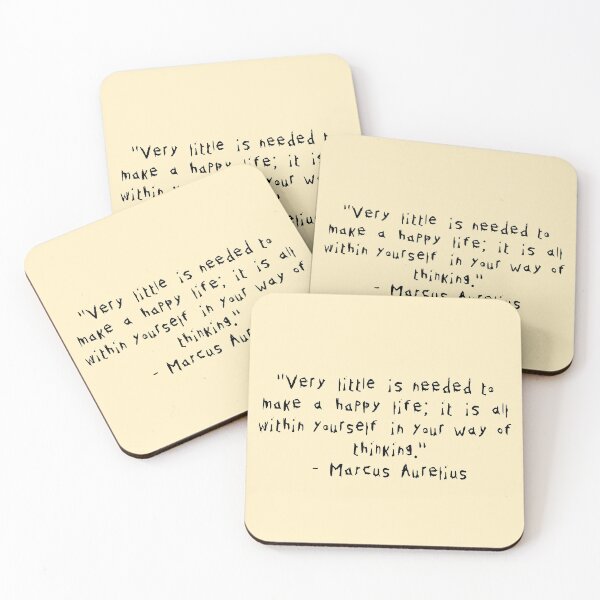 "Very little is needed
make a happy life; it is
within your way
"Very little is needed to
make a happy life; it is all
within yourself in your way of
thinking."
- Marcus Aurelius
"Very little is needed to
make a happy life; it is all
within yourself in your way of
thinking."
- Marcus
"Very little is needed to
make a happy life; it is all
within yourself in your way of
thinking."
- Marcus Aurelius